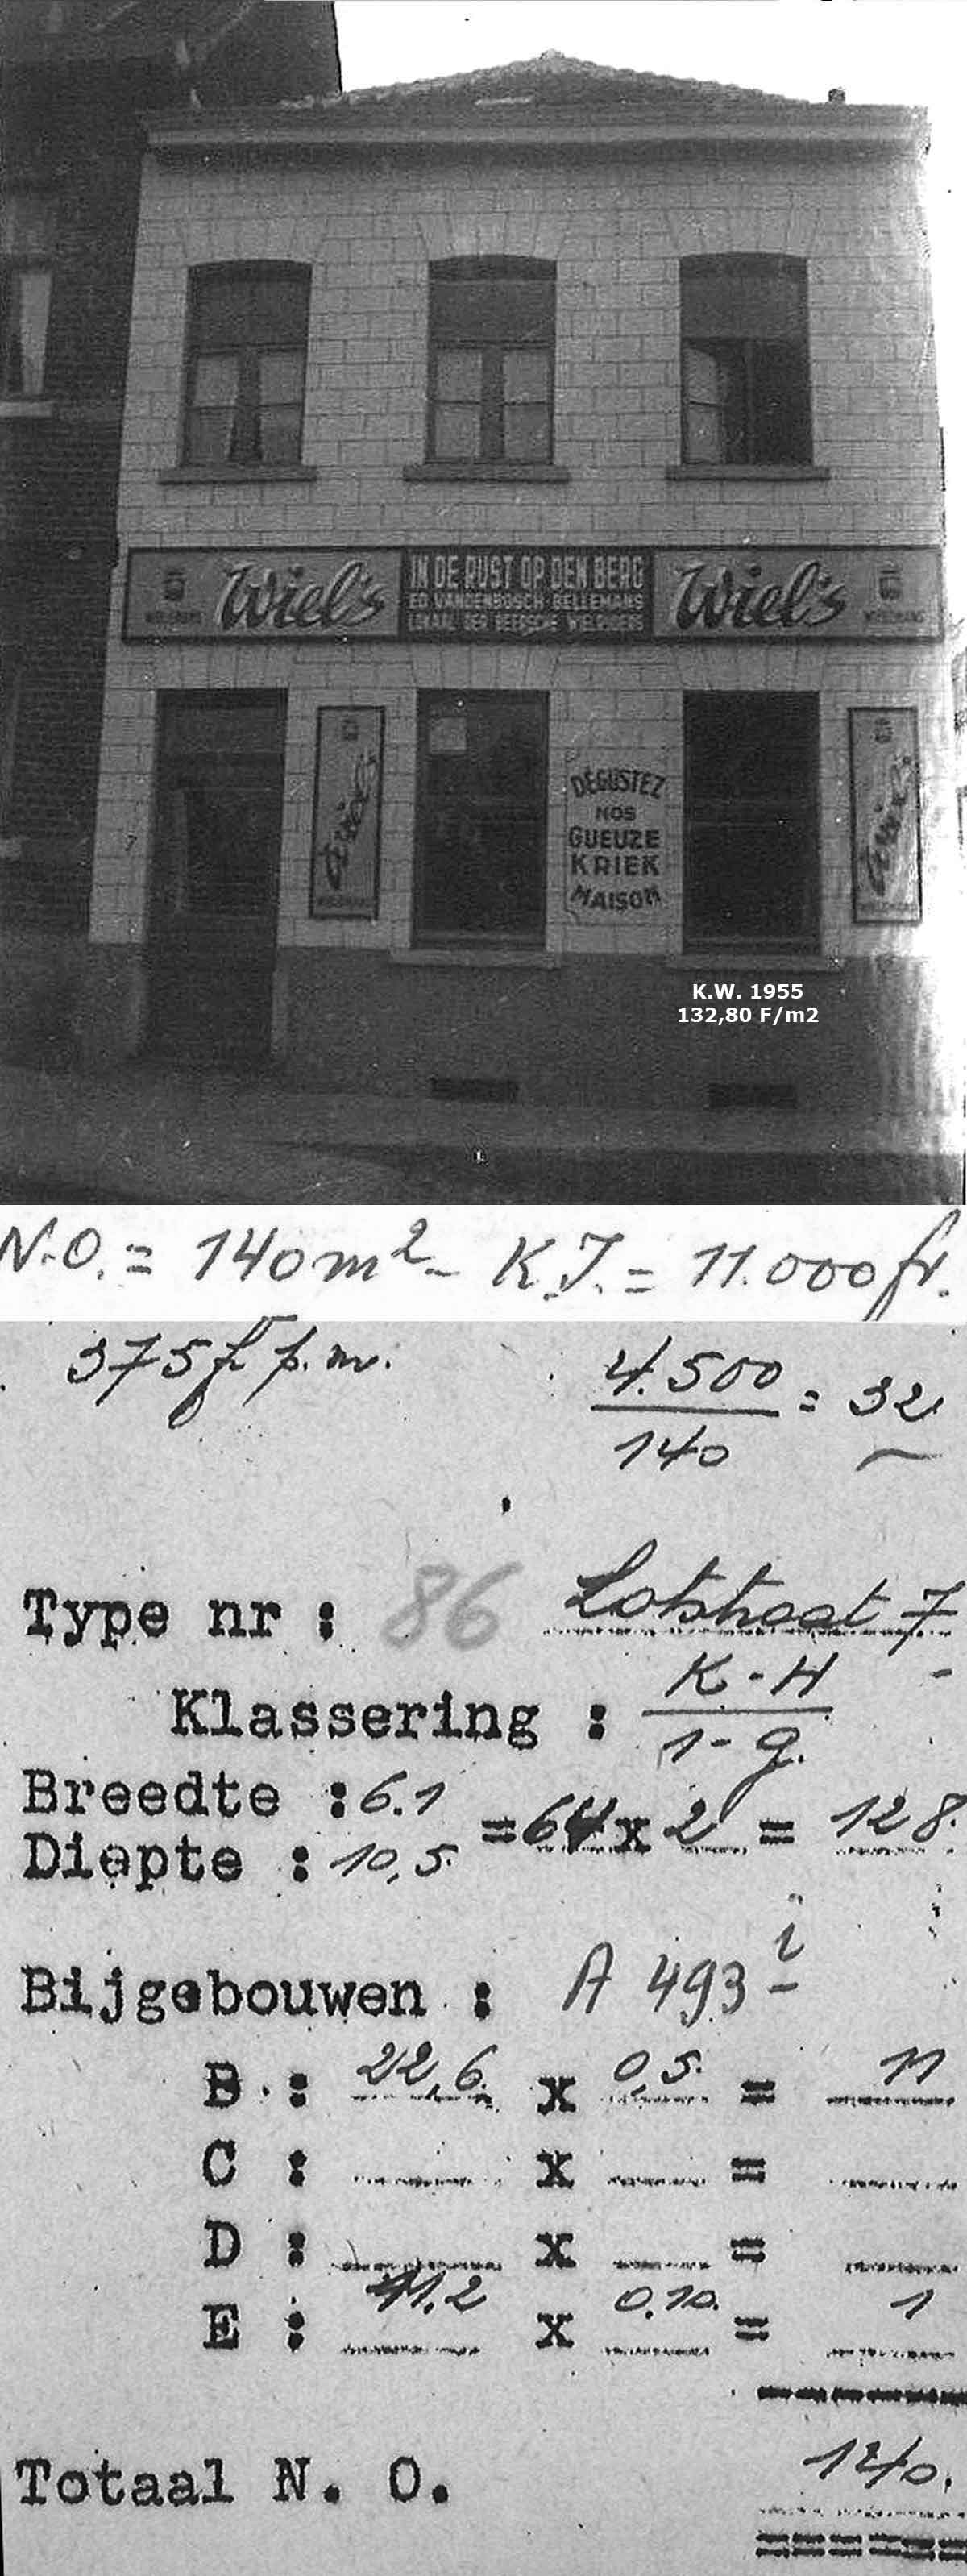 Wiel's
IN DE RUST OP DEN BERG
ED VANDENBOSCH-BELLEMANS
LOKAAL DER BEERSCHE WIELRIJDERS
Wiel's
WIELEMANS
WIELEMANS
Wiel's
Wiel's
7
DÉGUSTEZ
NOS
GUEUZE
KRIEK
MAISON
K.W. 1955
132,80 F/m2
N.O. = 140 m² - K.I. = 11.000 fr.
375 f p.m. 4.500 = 32
140
Type nr : 86 Lotstraat 7
Klassering : K - H
1 - g.
Breedte : 6.1
= 64 x 2 = 128.
Diepte : 10,5.
Bijgebouwen : A 493 i
B. : 22,6. x 0,5. = 11
C : x =
D : x =
E : 11.2 x 0.10. = 1
Totaal N. O. 140.